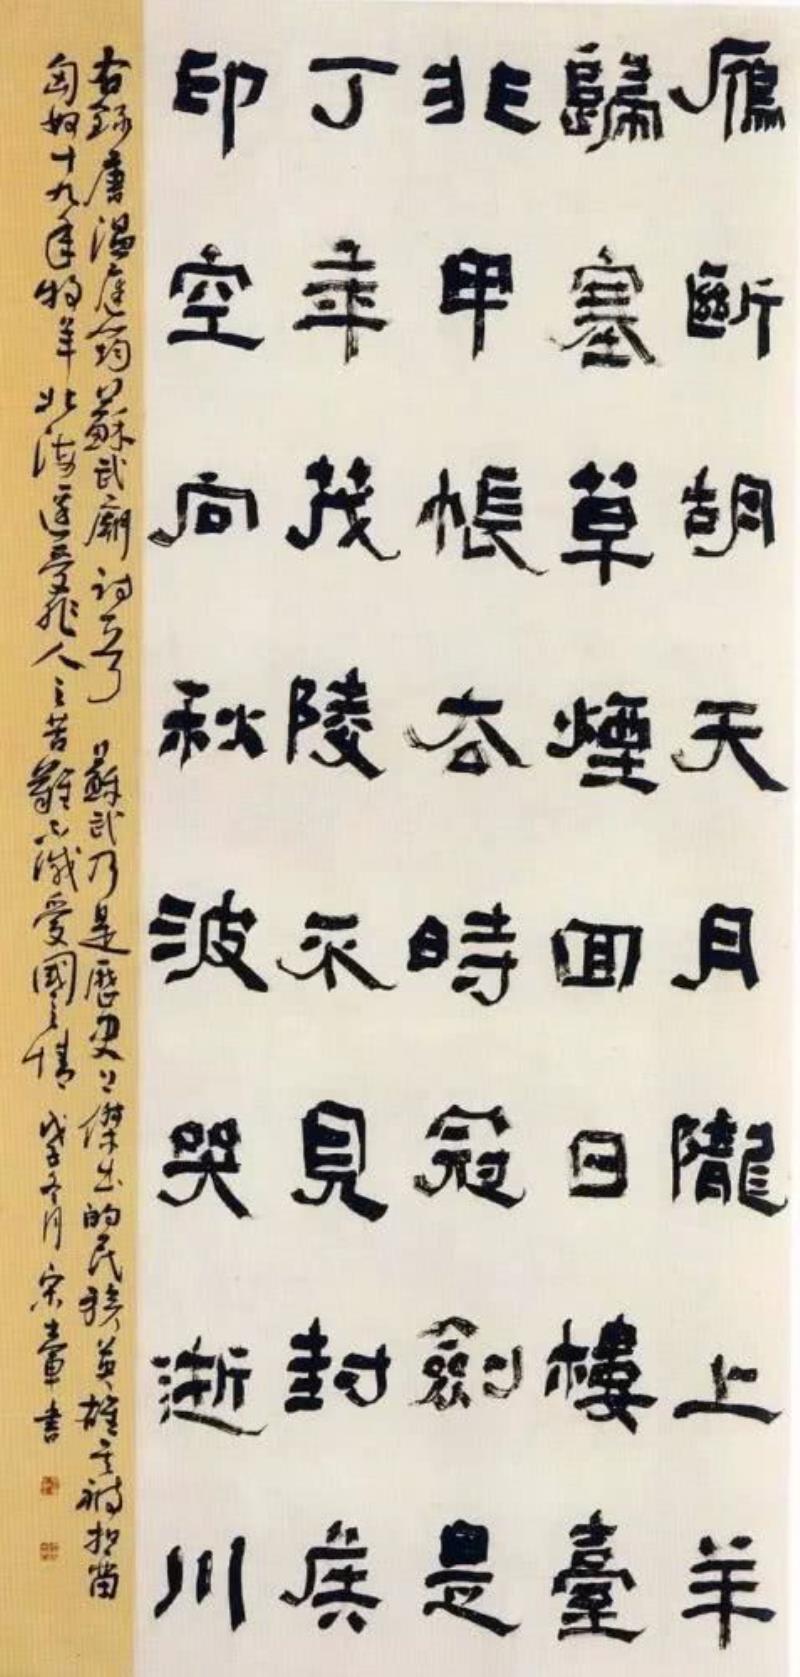 鴈斷胡天月隴上羊
歸塞草煙囬日樓臺
非甲帳去時冠劍是
丁年茂陵不見封侯
印空向秋波哭逝川
右錄唐溫庭筠蘇武廟詩 蘇武乃是歷史上傑出的民族英雄其被扣留
匈奴十九年牧羊北海受非人之苦難不減愛國之情 戊子冬月 宋書